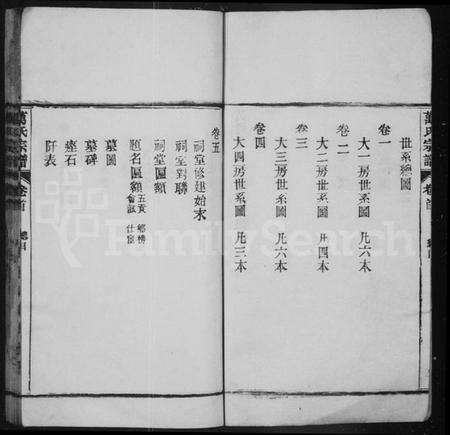 萬氏宗譜 卷首 總目
世系總圖
卷一
大一房世系圖 凡六本
卷二
大二房世系圖 凡四本
卷三
大三房世系圖 凡六本
卷四
大四房世系圖 凡三本
卷五
祠堂修建始末
祠堂對聯
祠堂匾額
題名匾額 五貢 鄉榜 會試 仕宦
墓圖
墓碑
瘞石
阡表
萬氏宗譜 卷首 總目
FamilySearch